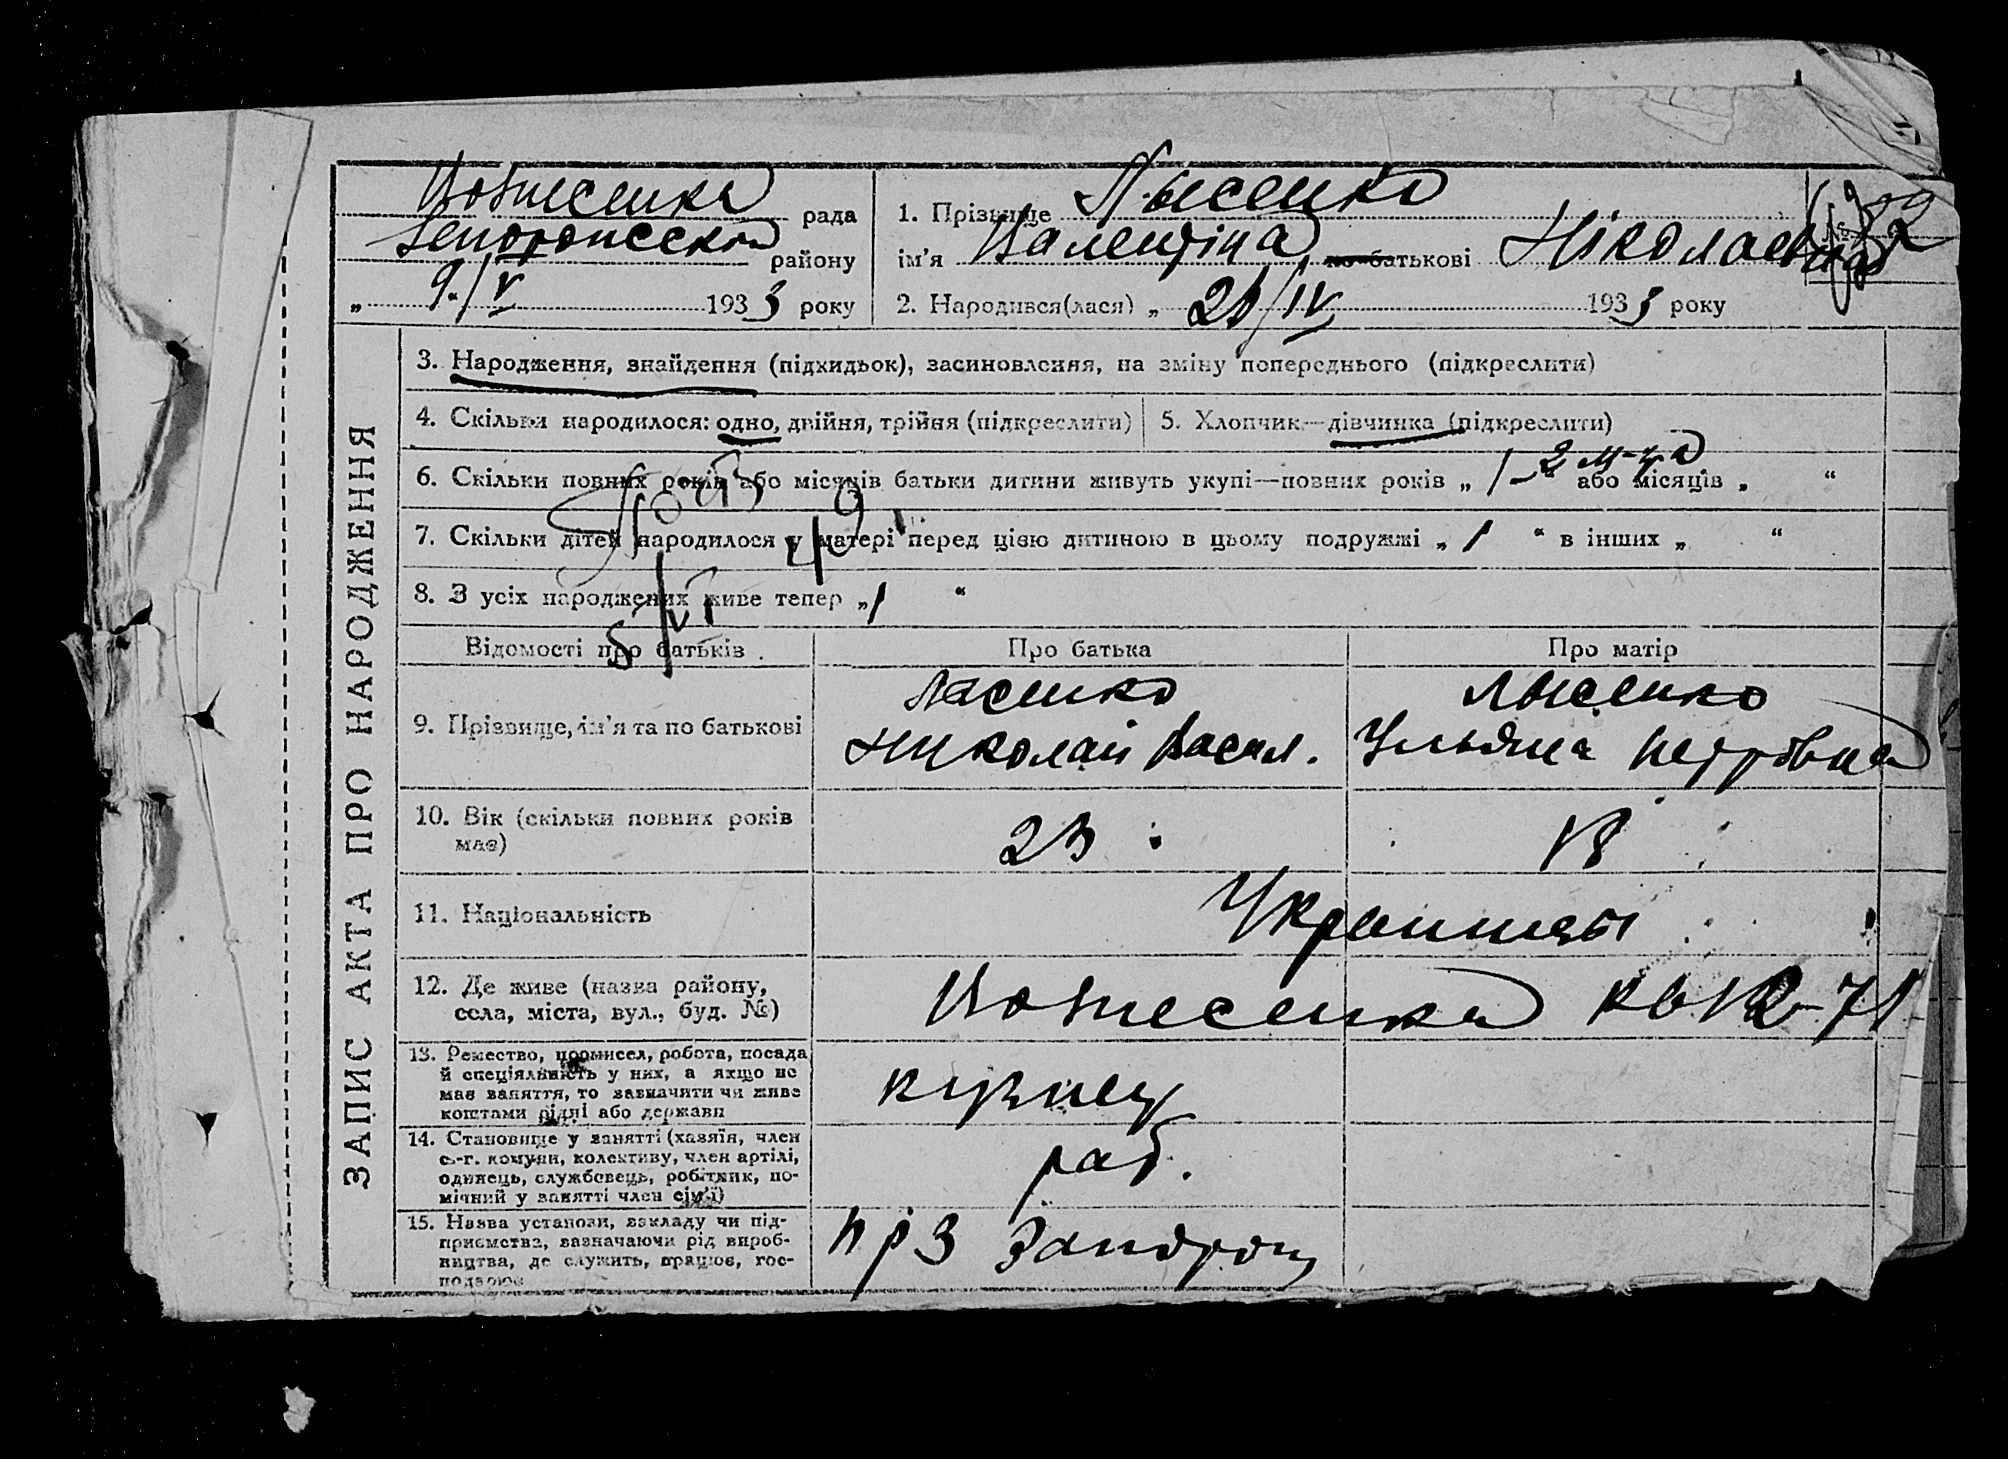 Вознесенка рада
Запорожский району
„ 9/V 1933 року
1. Прізвище Лысенко
ім'я Валентіна по батькові Ніколаевна
2. Народився(лася) „ 1933 року
ЗАПИС АКТА ПРО НАРОДЖЕННЯ
3. Народження, знайдення (підкидьок), засиновлення, на зміну попереднього (підкреслити)
4. Скільки народилося: одно, двійня, трійня (підкреслити)
5. Хлопчик—дівчинка (підкреслити)
6. Скільки повних років або місяців батьки дитини живуть укупі—повних років „ 1-2 м-ца “ або місяців „ “
7. Скільки дітей народилося у матері перед цією дитиною в цьому подружжі „ 1 “ в інших „ “
8. З усіх народжених живе тепер „ 1 “
Відомості про батьків
Про батька
Про матір
9. Прізвище, ім'я та по батькові
Лысенко
Николай Васил.
Лысенко
Ульяна Петровна
10. Вік (скільки повних років
має)
23
11. Національність
Украинцы
12. Де живе (назва району,
села, міста, вул., буд. №)
Вознесенка
13. Ремество, промисел, робота, посада
й спеціяльність у них, а якщо не
має заняття, то зазначити чи живе
коштами рідні або держави
кузнец
14. Становище у занятті (хазяїн, член
с.-г. комуни, колективу, член артілі,
одинець, службовець, робітник, по-
мічний у занятті член сім'ї)
раб.
15. Назва установи, закладу чи під-
приємства, зазначаючи рід вироб-
ництва, де служить, працює, гос-
подарює
ПРЗ Запорож